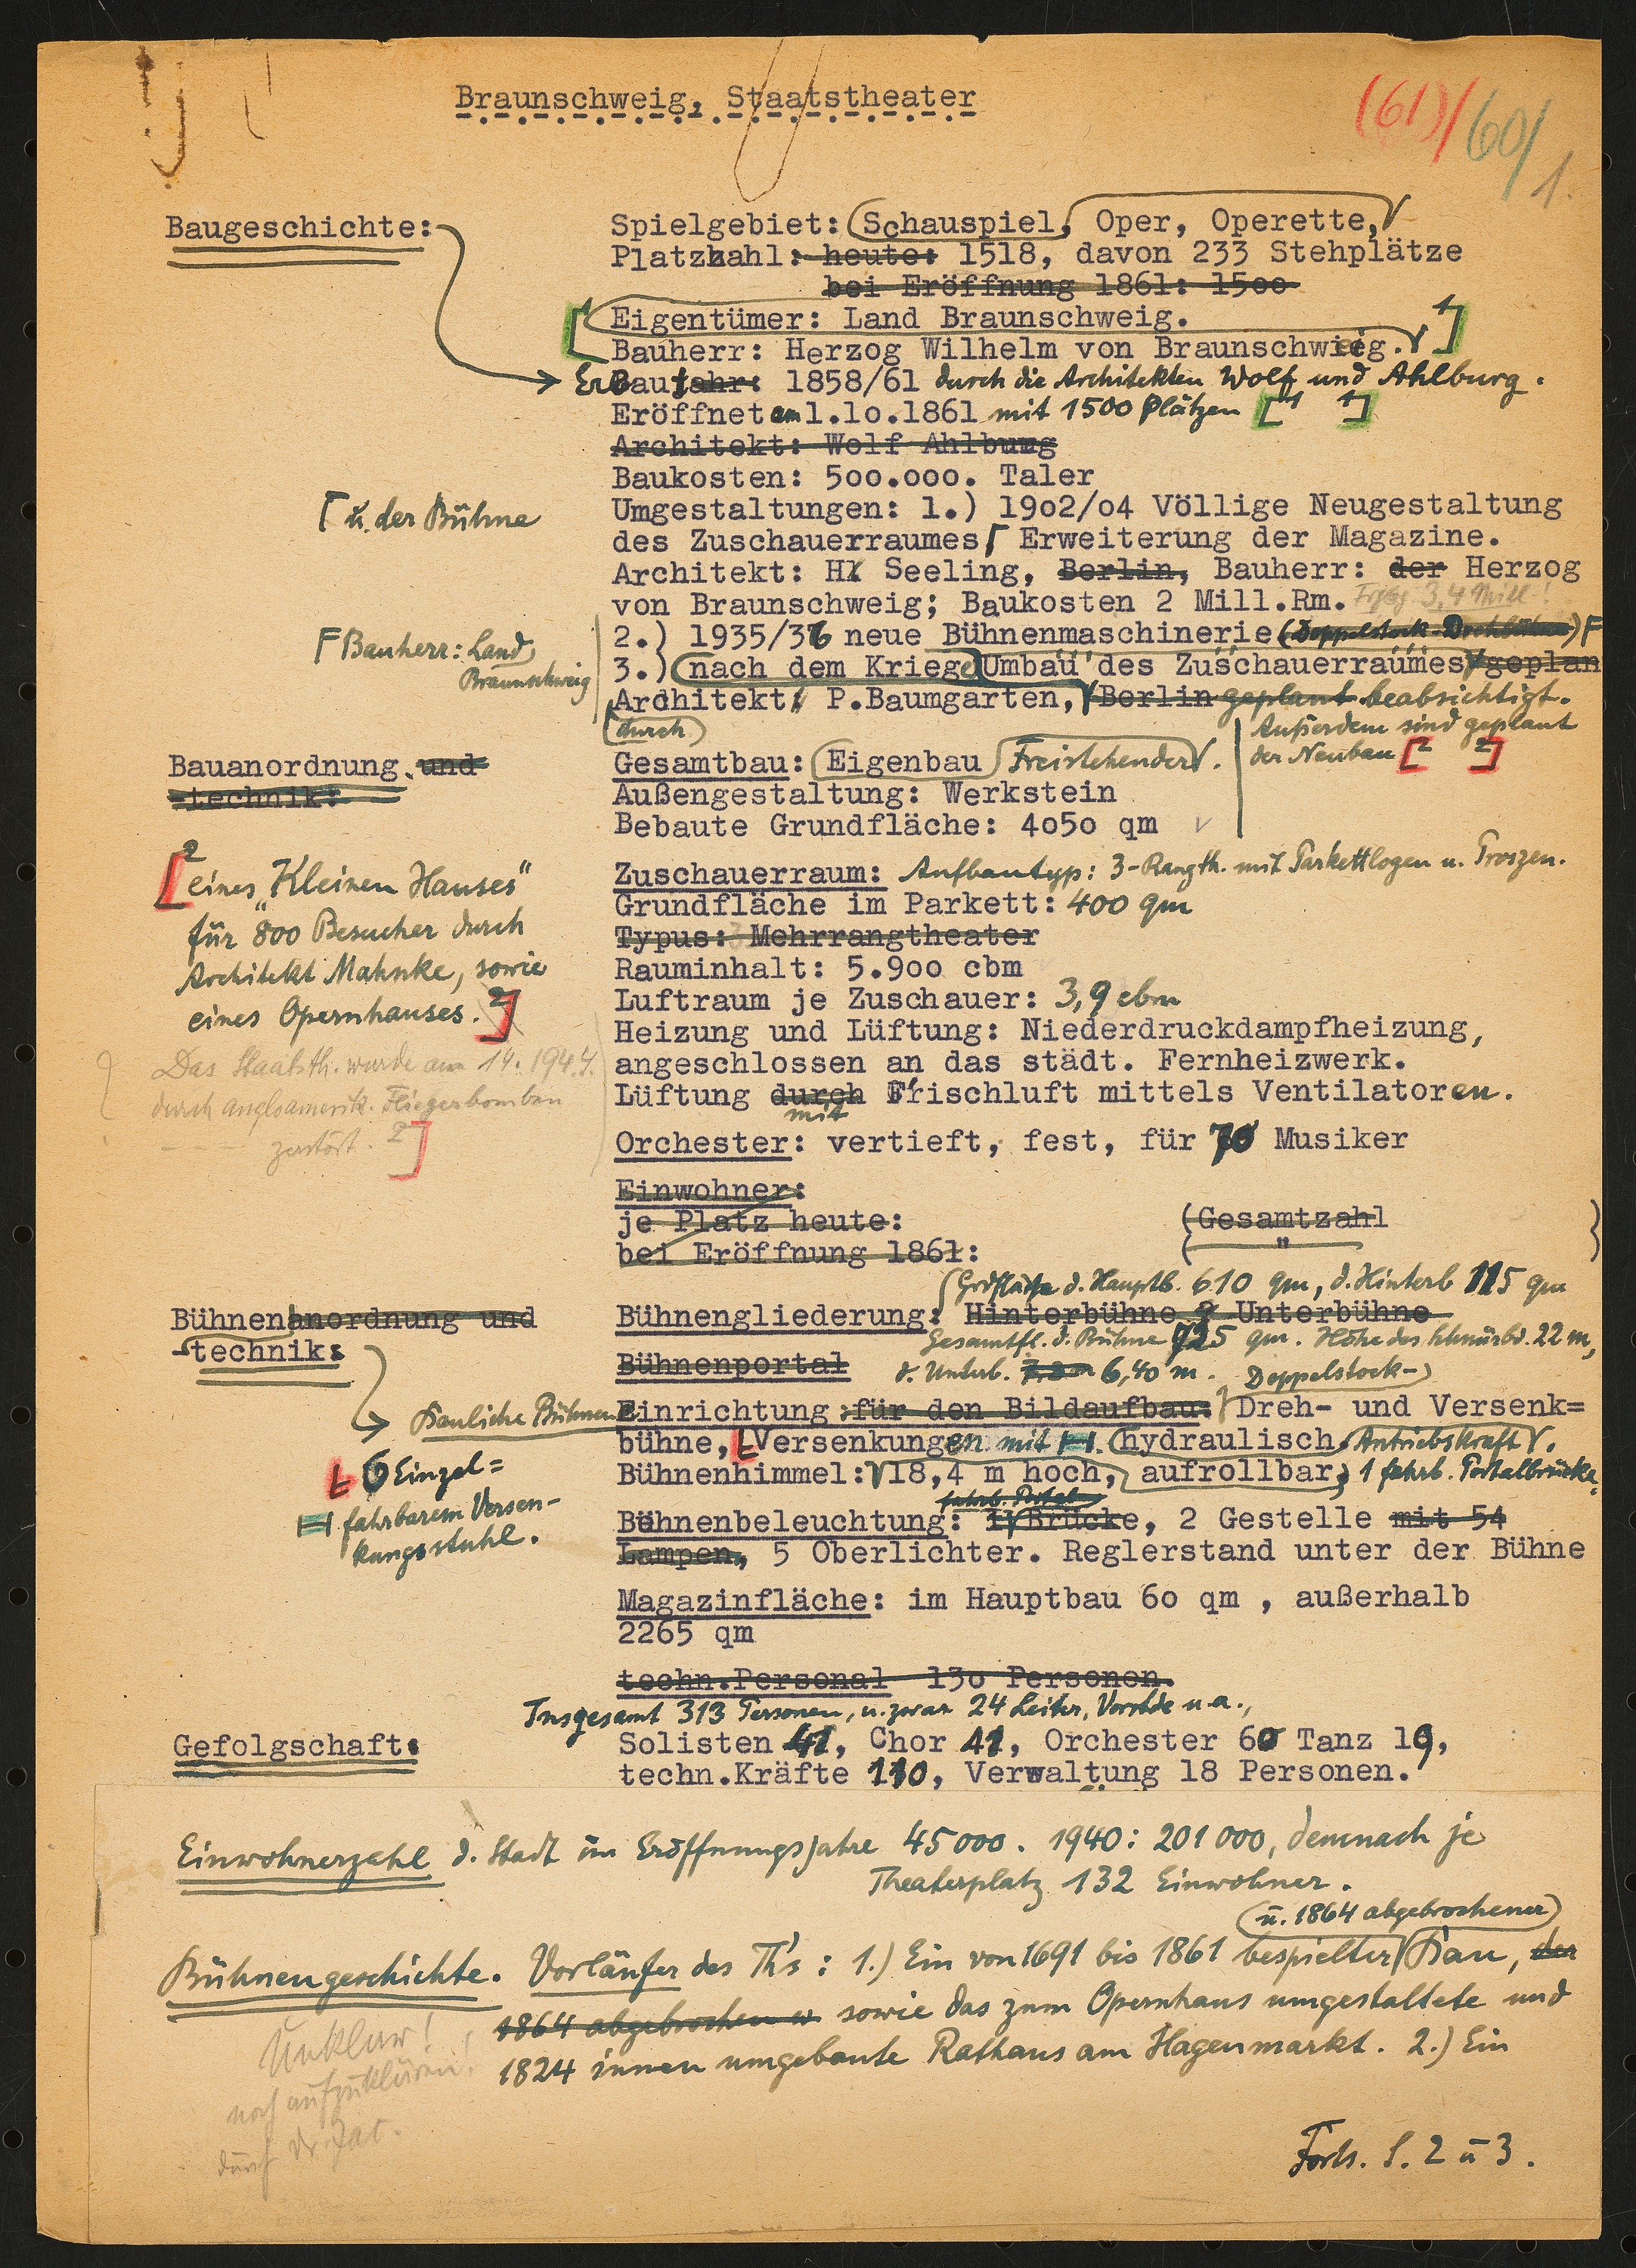 Braunschweig, Staatstheater
(61)/ 60/
1.
Baugeschichte:
Spielgebiet: Schauspiel, Oper, Operette,
Platzzahl: heute: 1518, davon 233 Stehplätze
bei Eröffnung 1861: 1500
Eigentümer: Land Braunschweig.
Bauherr: Herzog Wilhelm von Braunschweig.
Erbaut jahr: 1858/61 durch die Architekten Wolf und Ahlburg.
Eröffnet am 1.10.1861 mit 1500 Plätzen [1 1]
Architekt: Wolf Ahlburg
Baukosten: 500.000. Taler
⌈ u. der Bühne
Umgestaltungen: 1.) 1902/04 Völlige Neugestaltung
des Zuschauerraumes⌈ Erweiterung der Magazine.
Architekt: H. Seeling, Berlin, Bauherr: der Herzog
von Braunschweig; Baukosten 2 Mill.Rm. 3,4 Mill!
F Bauherr: Land
Braunschweig
2.) 1935/36 neue Bühnenmaschinerie (Doppelstock-Drehbühne) F
3.) nach dem Kriege Umbau des Zuschauerraumes geplan
Architekt P.Baumgarten, Berlin geplant beabsichtigt.
durch
Außerdem sind geplant
der Neubau [2 2]
Bauanordnung und
-technik:
Gesamtbau: Eigenbau Freistehender.
Außengestaltung: Werkstein
Bebaute Grundfläche: 4050 qm
[2 eines „Kleinen Hauses"
für 800 Besucher durch
Architekt Mahnke, sowie
eines Opernhauses. 2]
Das Staatsth. wurde am 14. 1944.
durch angloamerik. Fliegerbomben
zerstört. 2]
Zuschauerraum: Aufbautyp: 3-Rangth. mit Parkettlogen u. Proszen.
Grundfläche im Parkett: 400 qm
Typus: Mehrrangtheater
Rauminhalt: 5.900 cbm
Luftraum je Zuschauer: 3,9 cbm
Heizung und Lüftung: Niederdruckdampfheizung,
angeschlossen an das städt. Fernheizwerk.
Lüftung durch Frischluft mittels Ventilatoren.
mit
Orchester: vertieft, fest, für 70 Musiker
Einwohner:
je Platz heute: (Gesamtzahl )
bei Eröffnung 1861: ( " )
Grdfläche d. Hauptb. 610 qm, d. Hinterb 115 qm
Bühnenanordnung und
-technik:
Bühnengliederung: Hinterbühne ? Unterbühne
Gesamtfl. d. Bühne 725 qm. Höhe des Schnürbd. 22 m,
Bühnenportal
d. Unterb. 6,40 m. Doppelstock-
Bauliche Bühnen
Einrichtung für den Bildaufbau: Dreh- und Versenk=
bühne, [Versenkungen mit H. hydraulisch. Antriebskraft.
Bühnenhimmel: 18,4 m hoch, aufrollbar, 1 fahrb. Portalbrücke.
[ 6 Einzel=
H fahrbarem Versen-
kungsstuhl.
fahrb. Portal
Bühnenbeleuchtung: 1 Brücke, 2 Gestelle mit 54
Lampen, 5 Oberlichter. Reglerstand unter der Bühne
Magazinfläche: im Hauptbau 60 qm , außerhalb
2265 qm
techn.Personal 130 Personen.
Insgesamt 313 Personen, u. zwar 24 Leiter, Vorstde u.a.,
Gefolgschaft:
Solisten 41, Chor 41, Orchester 60 Tanz 19,
techn.Kräfte 110, Verwaltung 18 Personen.
Einwohnerzahl d. Stadt im Eröffnungsjahre 45000. 1940: 201000, demnach je
Theaterplatz 132 Einwohner.
(u. 1864 abgebrochener)
Bühnengeschichte. Vorläufer des Th's: 1.) Ein von 1691 bis 1861 bespielter Bau, der
1864 abgebrochen w sowie das zum Opernhaus umgestaltete und
1824 innen umgebaute Rathaus am Hagenmarkt. 2.) Ein
Unklar!
noch aufzuklären!
durch
Forts. S. 2 u 3.